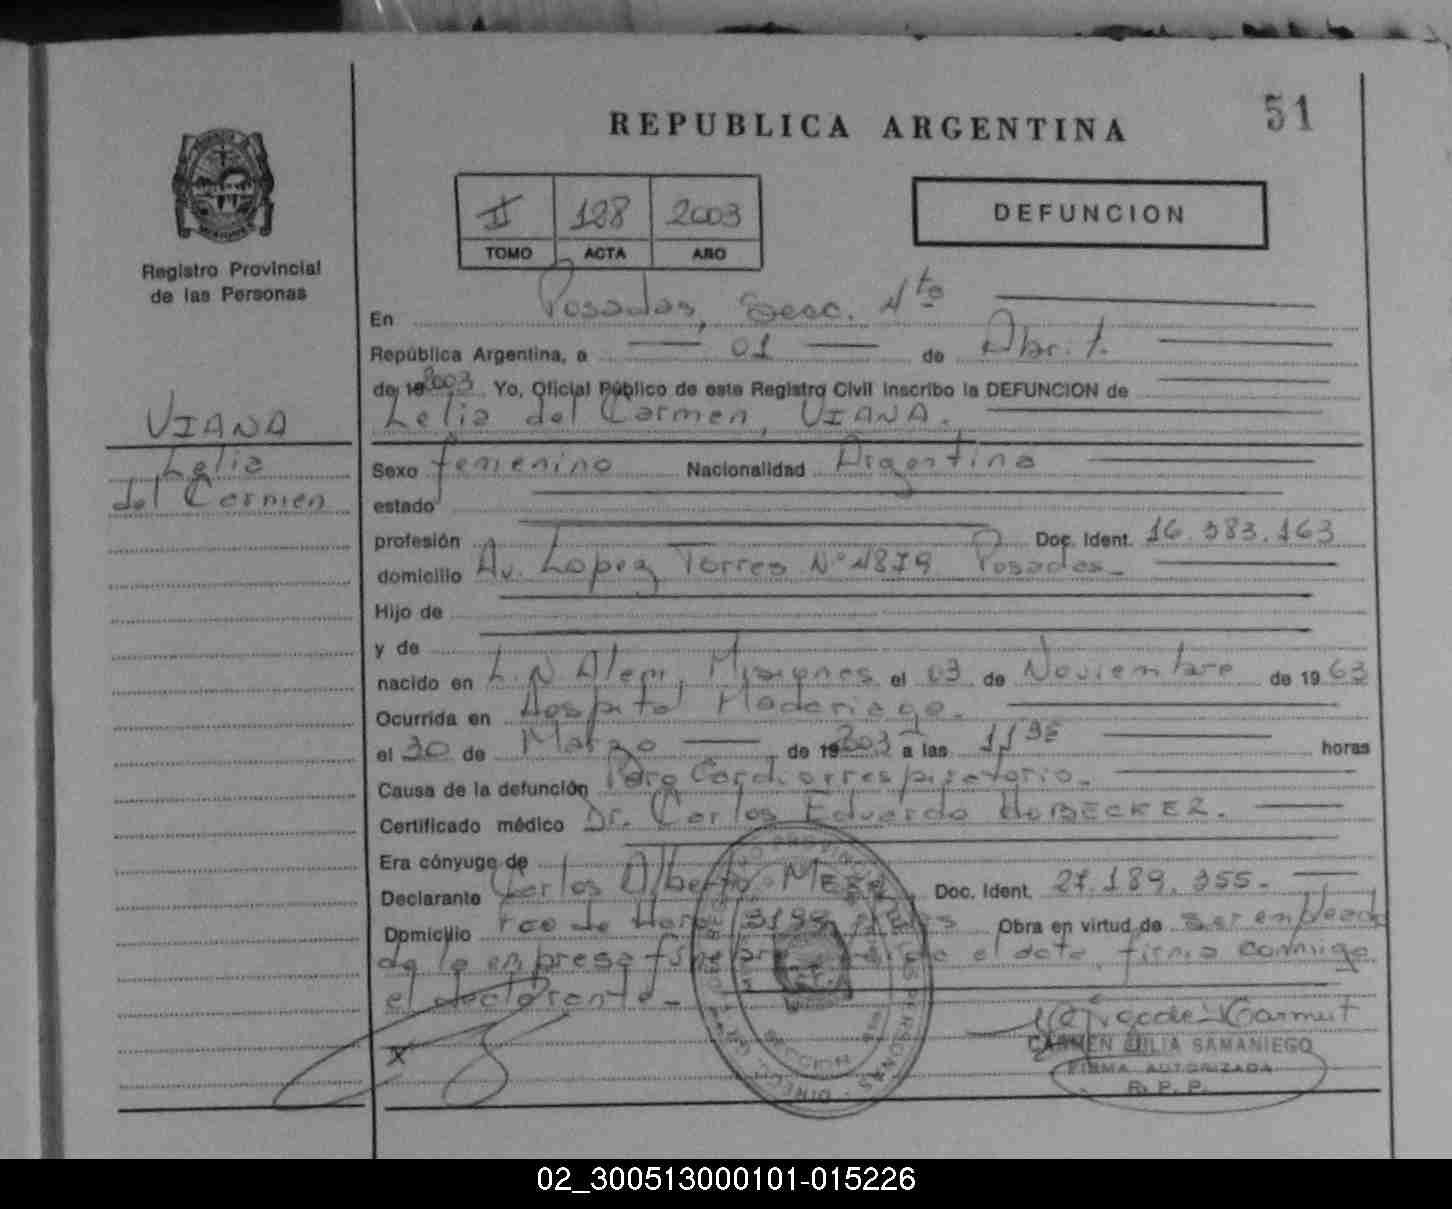 51
REPUBLICA ARGENTINA
II 128 2003
TOMO ACTA AÑO
DEFUNCION
Registro Provincial
de las Personas
En Posadas, Secc. 4ta
República Argentina, a 01 de Abril
de 19 2003 Yo, Oficial Público de este Registro Civil inscribo la DEFUNCION de
Lelia del Carmen, VIANA.
VIANA
Lelia
del Carmen
Sexo femenino Nacionalidad Argentina
estado
profesión Doc. Ident. 16.383.163
domicilio Av. Lopez Torres N° 4879 Posadas
Hijo de
y de
nacido en L.N Alem, Misiones el 03 de Noviembre de 19 63
Ocurrida en Hospital Madariaga.
el 30 de Marzo de 19 2003 a las 11 35 horas
Causa de la defunción Paro Cardiorrespiratorio.
Certificado médico Dr. Carlos Eduardo
Era cónyuge de
Declarante Carlos Alberto Doc. Ident. 27.189.355.
Domicilio Obra en virtud de ser empleado
de la empresa el dato, firma conmigo
el declarante
x
CARMEN JULIA SAMANIEGO
FIRMA AUTORIZADA
R. P. P.
02_300513000101-015226